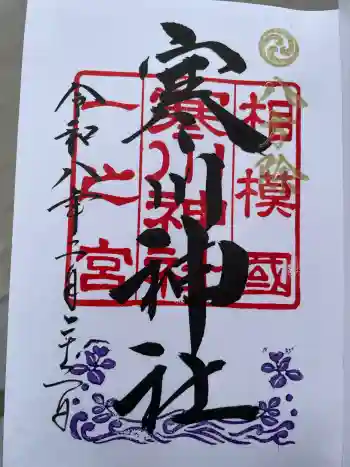 八方除
相模國
寒川神社
一之宮
寒川神社
令和八年二月二十一日